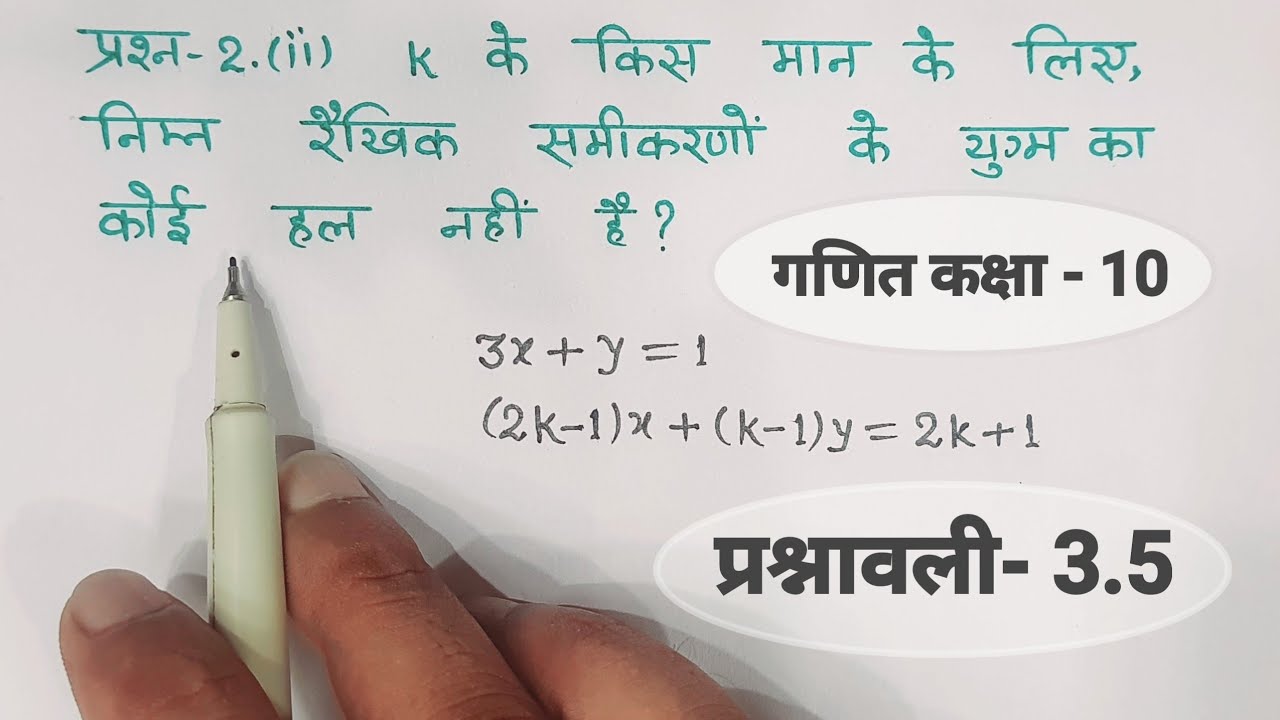 प्रश्न-2.(ii) K के किस मान के लिए,
निम्न रैखिक समीकरणों के युग्म का
कोई हल नहीं है?
गणित कक्षा - 10
3x+y=1
(2k-1)x+(k-1)y=2k+1
प्रश्नावली- 3.5